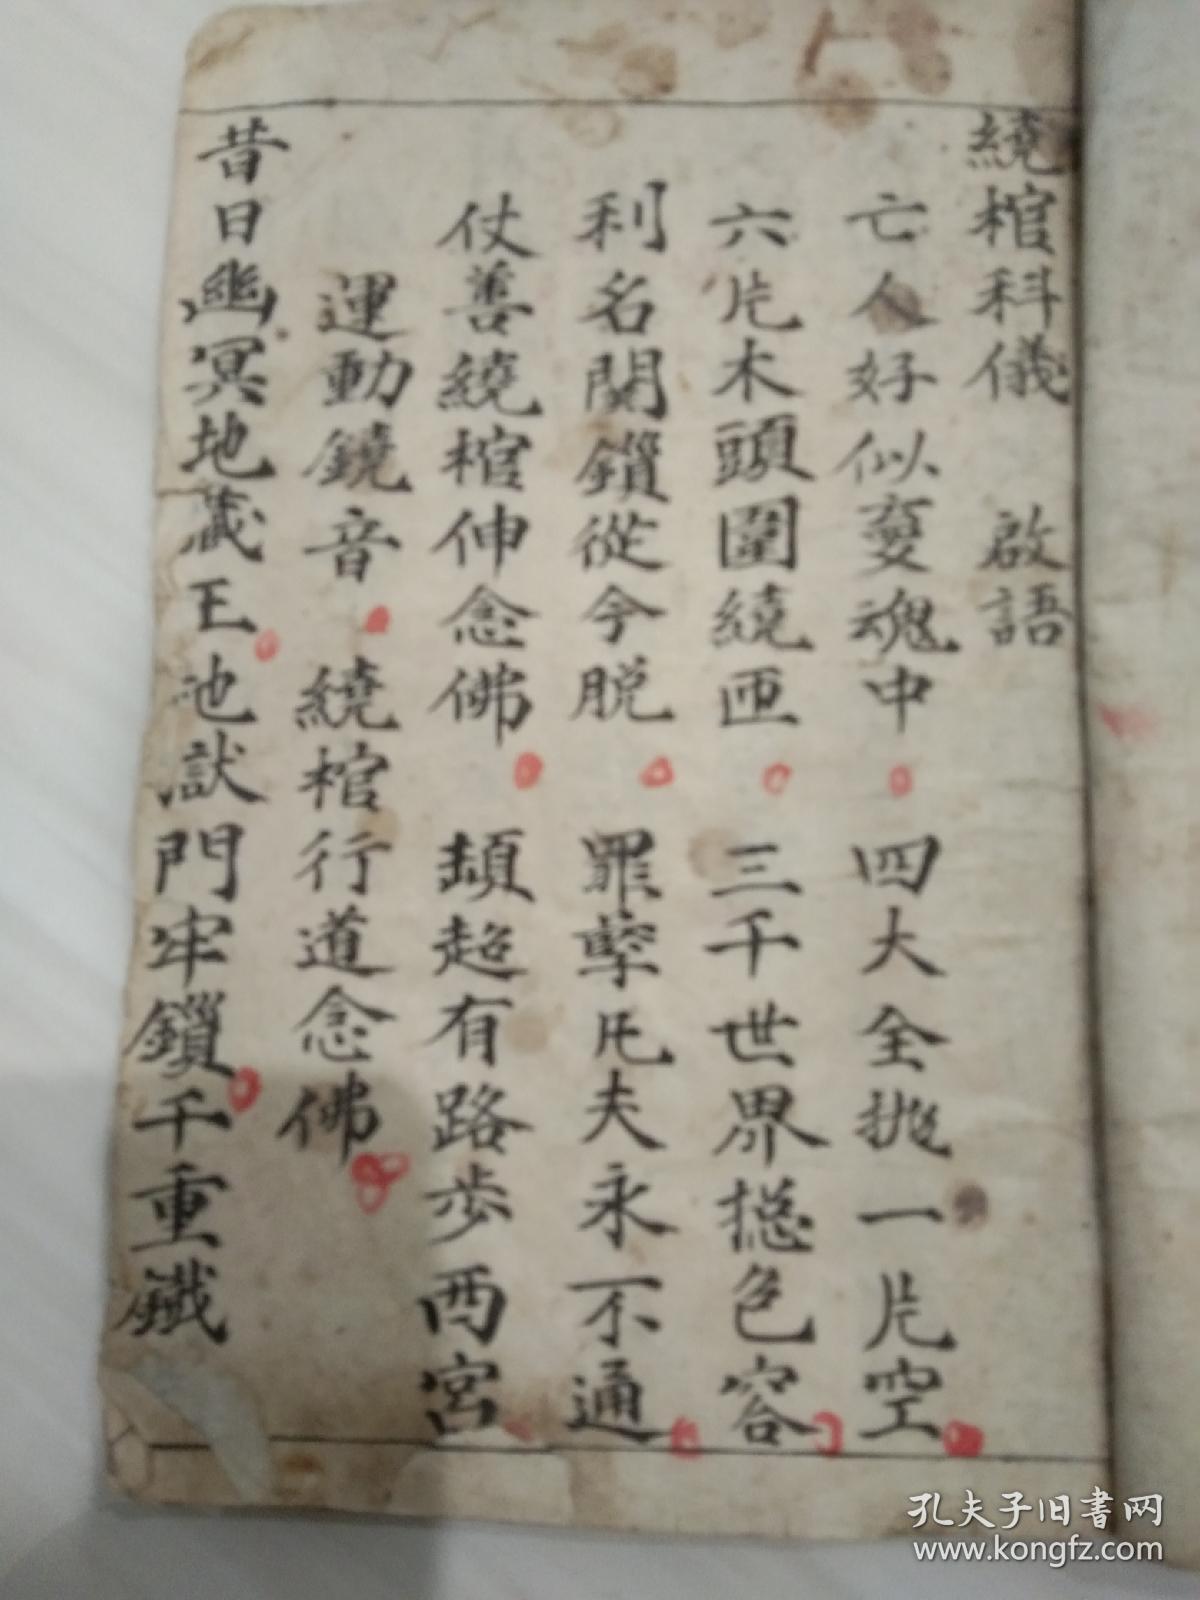 繞棺科儀 啟語
亡人好似夢魂中 四大全抛一片空
六片木頭圍繞匝 三千世界搃色容
利名関鎖從今脱 罪孽凡夫永不通
仗善繞棺伸念佛 頓超有路步西宮
運動鐃音 繞棺行道念佛
昔日幽冥地藏王 地獄門牢鎖千重鐵
孔夫子旧书网
www.kongfz.com